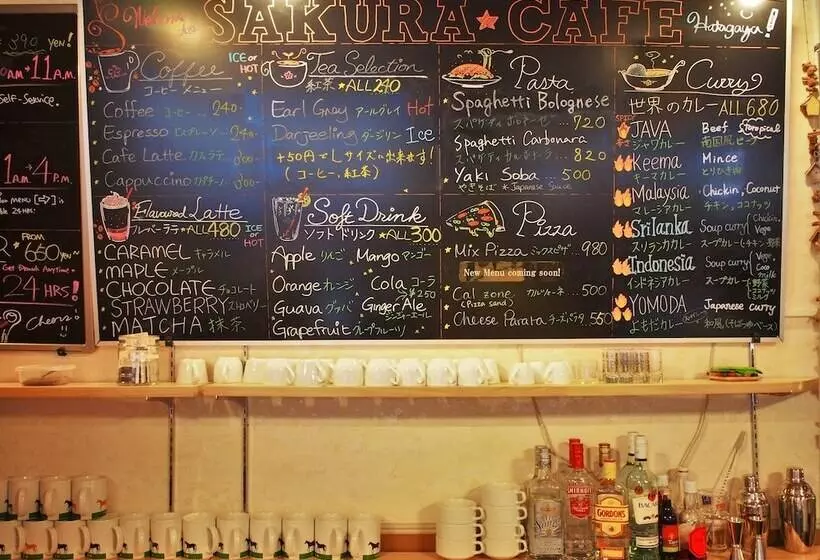 Welcome to
SAKURA★CAFE
Hatagaya!
yen!
11 A.M.
Self-Service.
1 → 4 P.M.
FROM
650 yen~
Get Drunk Anytime
24 HRS!
Cheers!
Coffee ICE or HOT
コーヒーメニュー
Coffee コーヒー 240-
Espresso エスプレッソ 240-
Cafe Latte カフェラテ 300-
Cappuccino カプチーノ 300-
Tea Selection
紅茶 ★ALL 240
Earl Grey アールグレイ Hot
Darjeeling ダージリン Ice
+50円でLサイズに出来ます!
(コーヒー、紅茶)
Pasta
Spaghetti Bolognese
スパゲティ ボロネーゼ ...720
Spaghetti Carbonara
スパゲティ カルボナーラ ... 820
Yaki Soba ... 500
やきそば *Japanese Sauce
Curry
世界のカレー ALL 680
SPICE
JAVA Beef & tropical
ジャワカレー 南国風ビーフ
Keema Mince
キーマカレー とりひき肉
Malaysia Chickin, Coconut
マレーシアカレー チキン、ココナッツ
Srilanka Soup curry (Chickin, Vege
スリランカカレー スープカレー(チキン・野菜
Indonesia Soup curry (Vege Coco milk
インドネシアカレー スープカレー
YOMODA Japanese curry
よもだカレー 和風(そばつゆベース)
Flavoured Latte
フレーバーラテ ★ALL 480 ICE or HOT
CARAMEL キャラメル
MAPLE メープル
CHOCOLATE チョコレート
STRAWBERRY ストロベリー
MATCHA 抹茶
Soft Drink
ソフトドリンク ★ALL 300
Apple りんご、Mango マンゴー
Orange オレンジ Cola コーラ
250
Guava グァバ Ginger Ale
ジンジャーエール
Grapefruit グレープフルーツ
Pizza
Mix Pizza ミックスピザ ... 980
New Menu coming soon!
Cal zone カルツォーネ ... 500
(Pizza sand)
Cheese Parata チーズパラタ .. 550
SMIRNOFF
GORDON'S
BACARDI